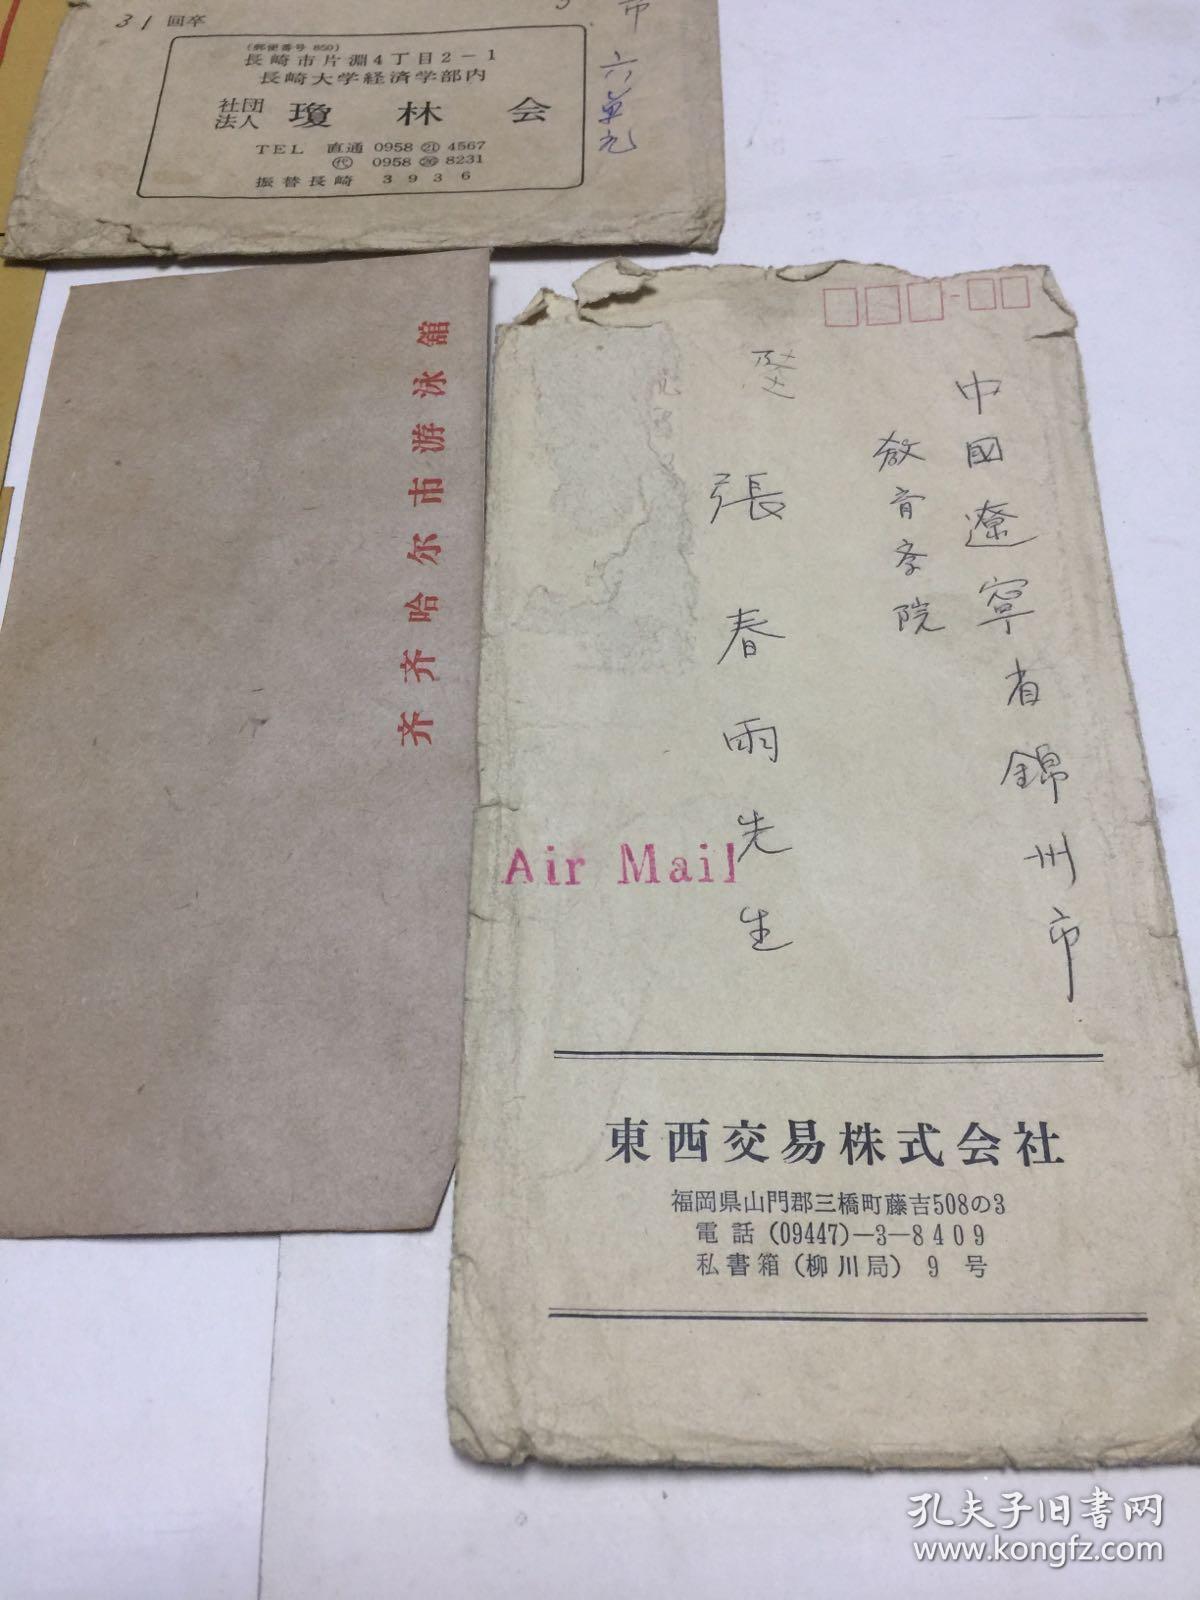 31 回卒
市
六单元
(郵便番号 850)
長崎市片淵4丁目2-1
長崎大学経済学部内
社団法人 瓊林会
TEL 直通 0958 ㉑ 4567
㈹ 0958 ㉖ 8231
振替長崎 3936
齐齐哈尔市游泳舘
中國遼寧省錦州市
教育学院
張春雨先生
Air Mail
東西交易株式会社
福岡県山門郡三橋町藤吉508の3
電話 (09447)-3-8409
私書箱 (柳川局) 9号
孔夫子旧书网
www.kongfz.com